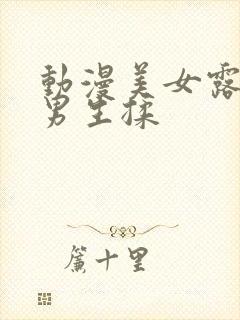 動漫美女露
男生揉
簾十里